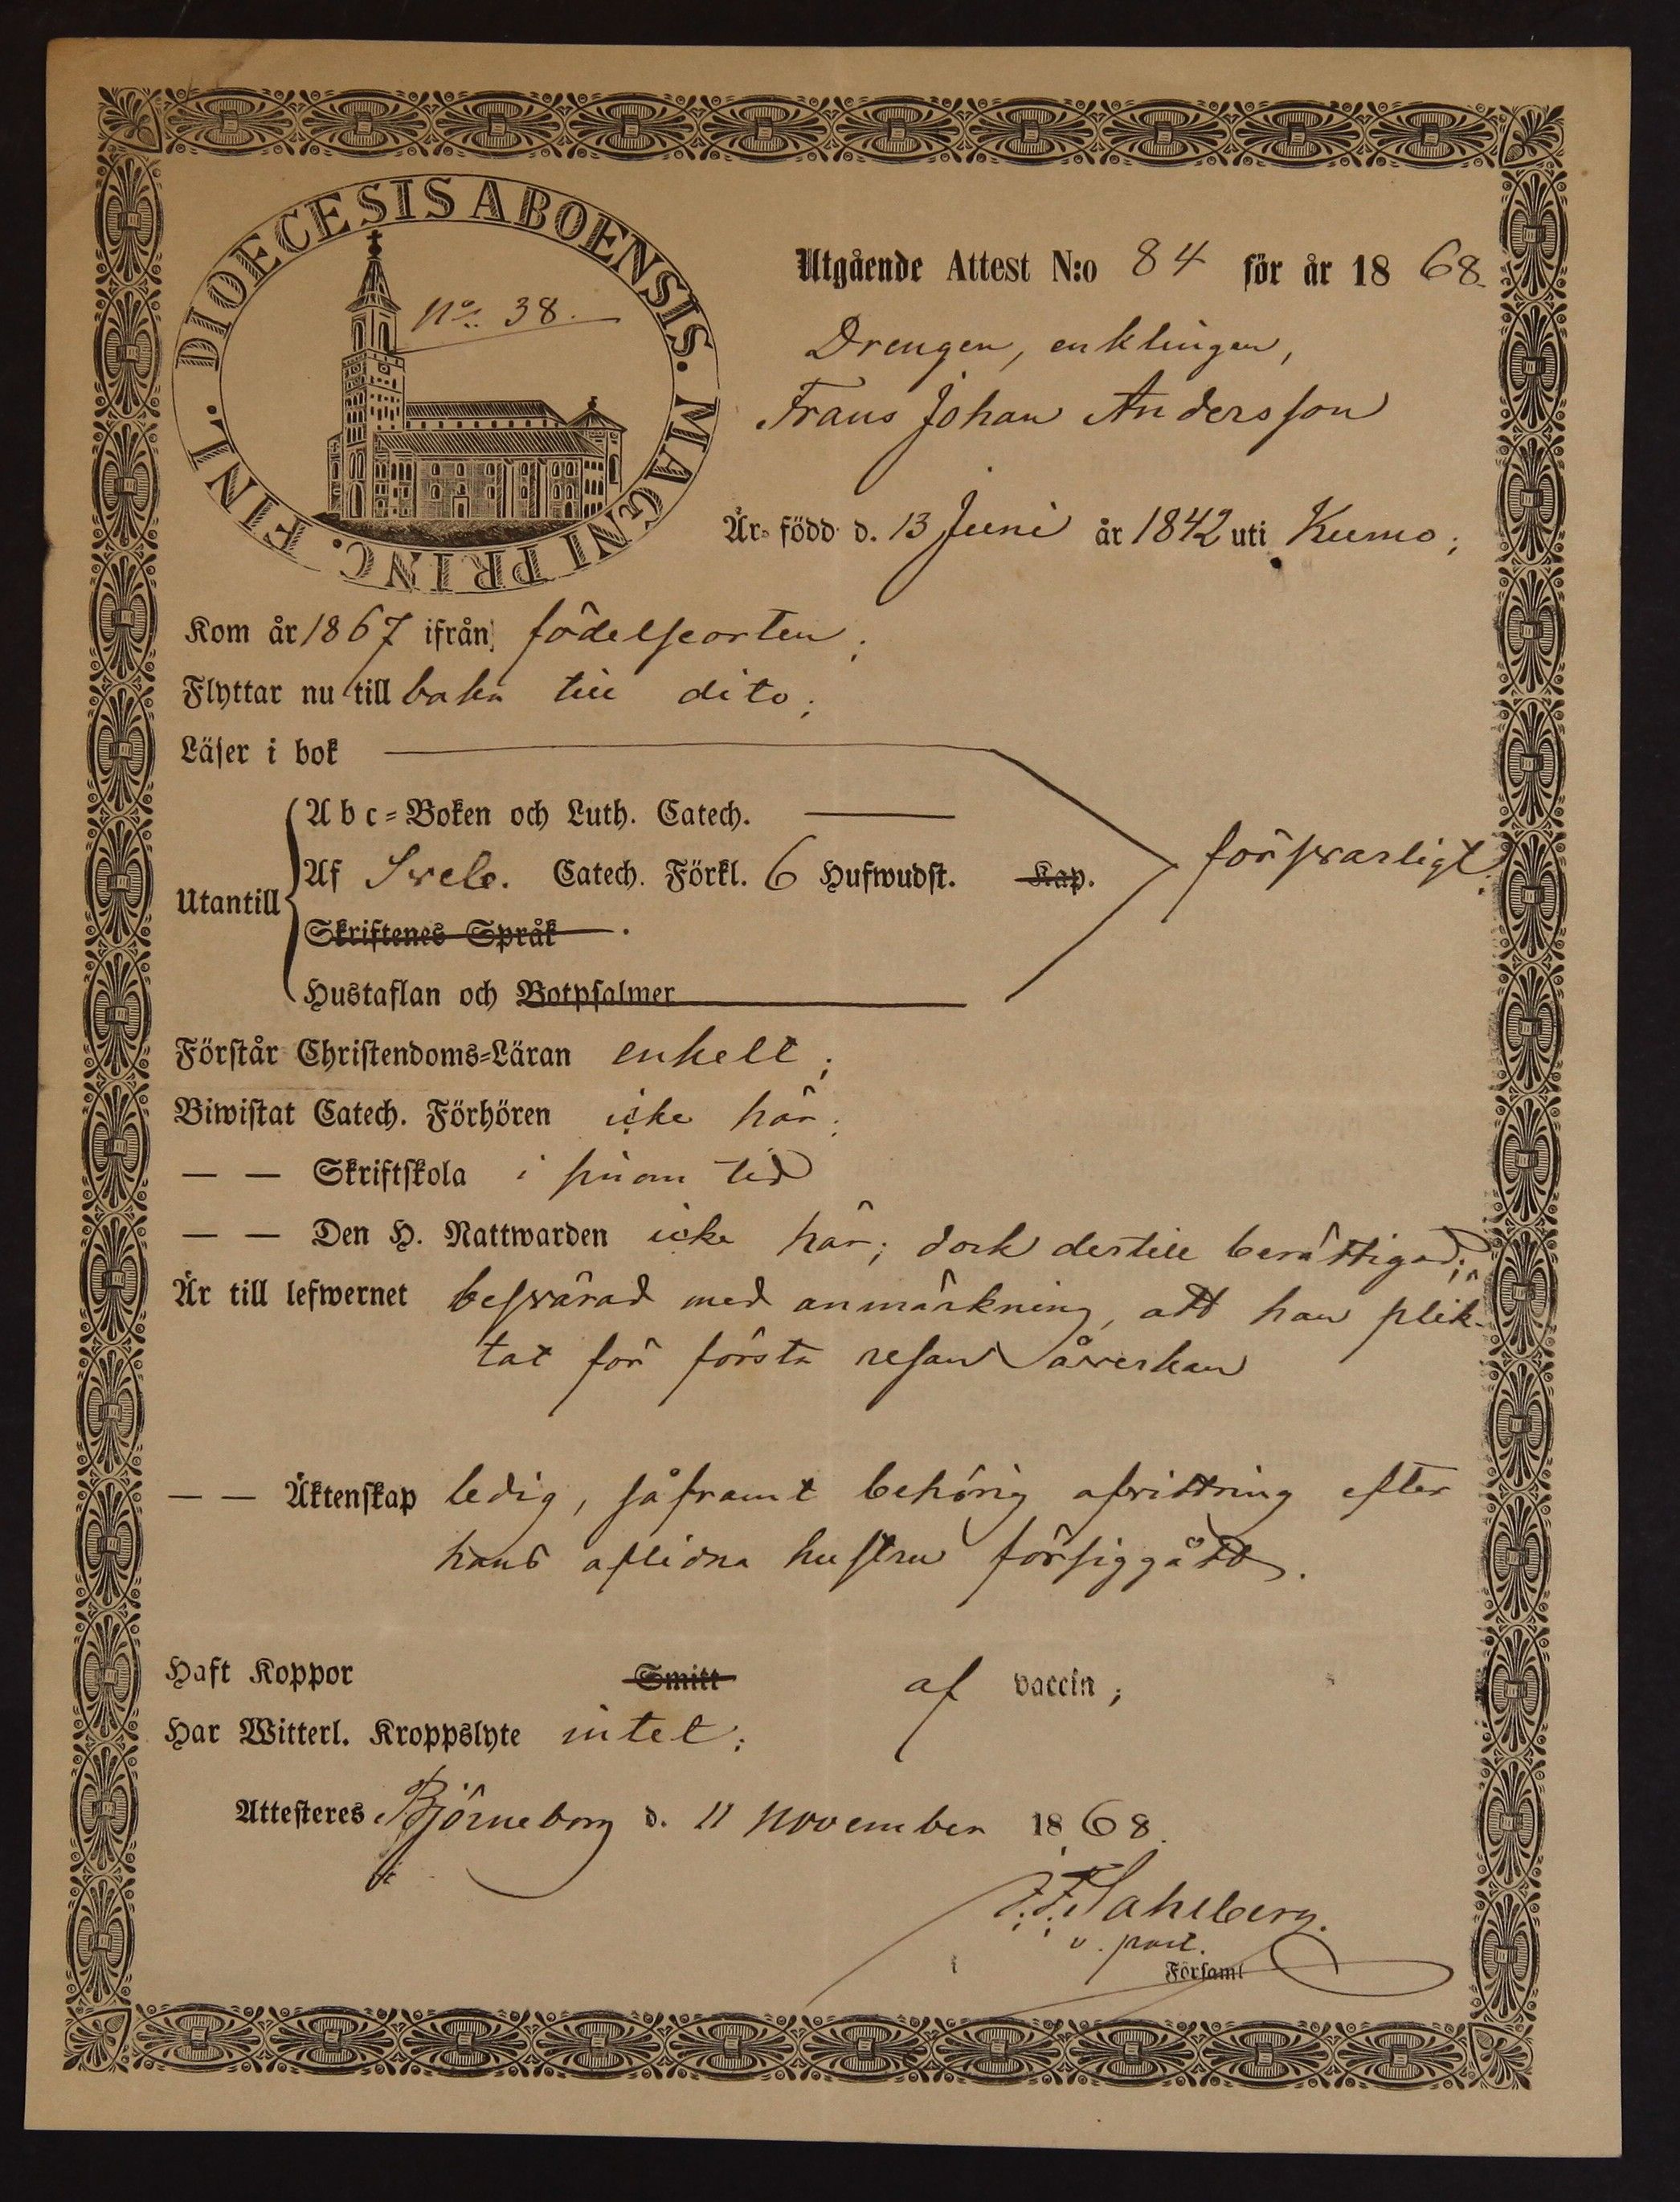 DIOECESIS ABOENSIS. MAGNI PRINC. FINL.
No. 38.
Utgående Attest N:o 84 för år 1868.
Drengen, enklingen,
Frans Johan Andersson
Är född d. 13 Juni år 1842 uti Kumo;
Kom år 1867 ifrån födelseorten;
Flyttar nu till baka till dito;
Läser i bok
Abc-Boken och Luth. Catech.
Utantill Af Sveb. Catech. Förkl. 6 Hufwudst. Kap. försvarligt.
Skriftenes Språk
Hustaflan och Botpsalmer
Förstår Christendoms-Läran enkelt;
Biwistat Catech. Förhören icke här;
— — Skriftskola i sinom tid
— — Den H. Nattwarden icke här; dock dertill berättigad;
Är till lefwernet besvärad med anmärkning, att han plik-
tat för första resan åverkan
— — Äktenskap ledig, såframt behörig afvittring efter
hans aflidna hustru försiggått.
Haft Koppor Smitt af vaccin;
Har Witterl. Kroppslyte intet;
Attesteres Björneborg d. 11 November 1868.
F. Sahlberg.
v. past.
Församl